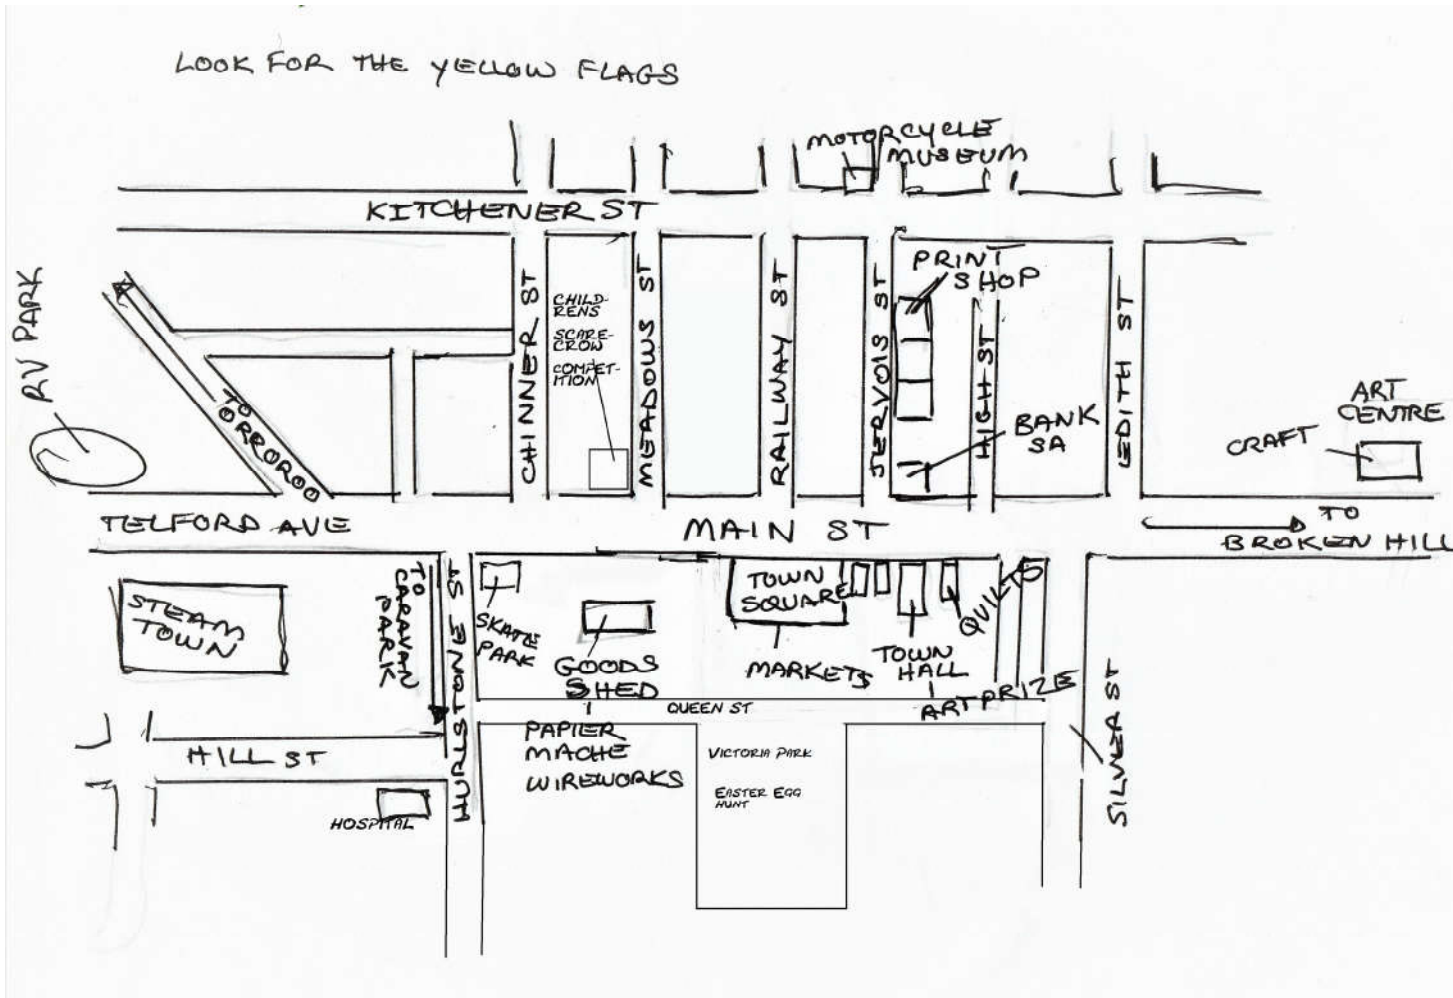 LOOK FOR THE YELLOW FLAGS
MOTORCYCLE
MUSEUM
KITCHENER ST
RV PARK
CHINNER ST
CHILD-
RENS
SCARE-
CROW
COMPET-
ITION
MEADOWS ST
RAILWAY ST
JERVOIS ST
PRINT
SHOP
HIGH ST
BANK
SA
EDITH ST
ART
CENTRE
CRAFT
TO
ORROROO
TELFORD AVE
MAIN ST
TO
BROKEN HILL
STEAM
TOWN
TO
CARAVAN
PARK
HURLSTONE ST
SKATE
PARK
GOODS
SHED
TOWN
SQUARE
MARKETS
TOWN
HALL
QUILTS
ART PRIZE
SILVER ST
QUEEN ST
PAPIER
MACHE
WIREWORKS
HILL ST
HOSPITAL
VICTORIA PARK
EASTER EGG
HUNT